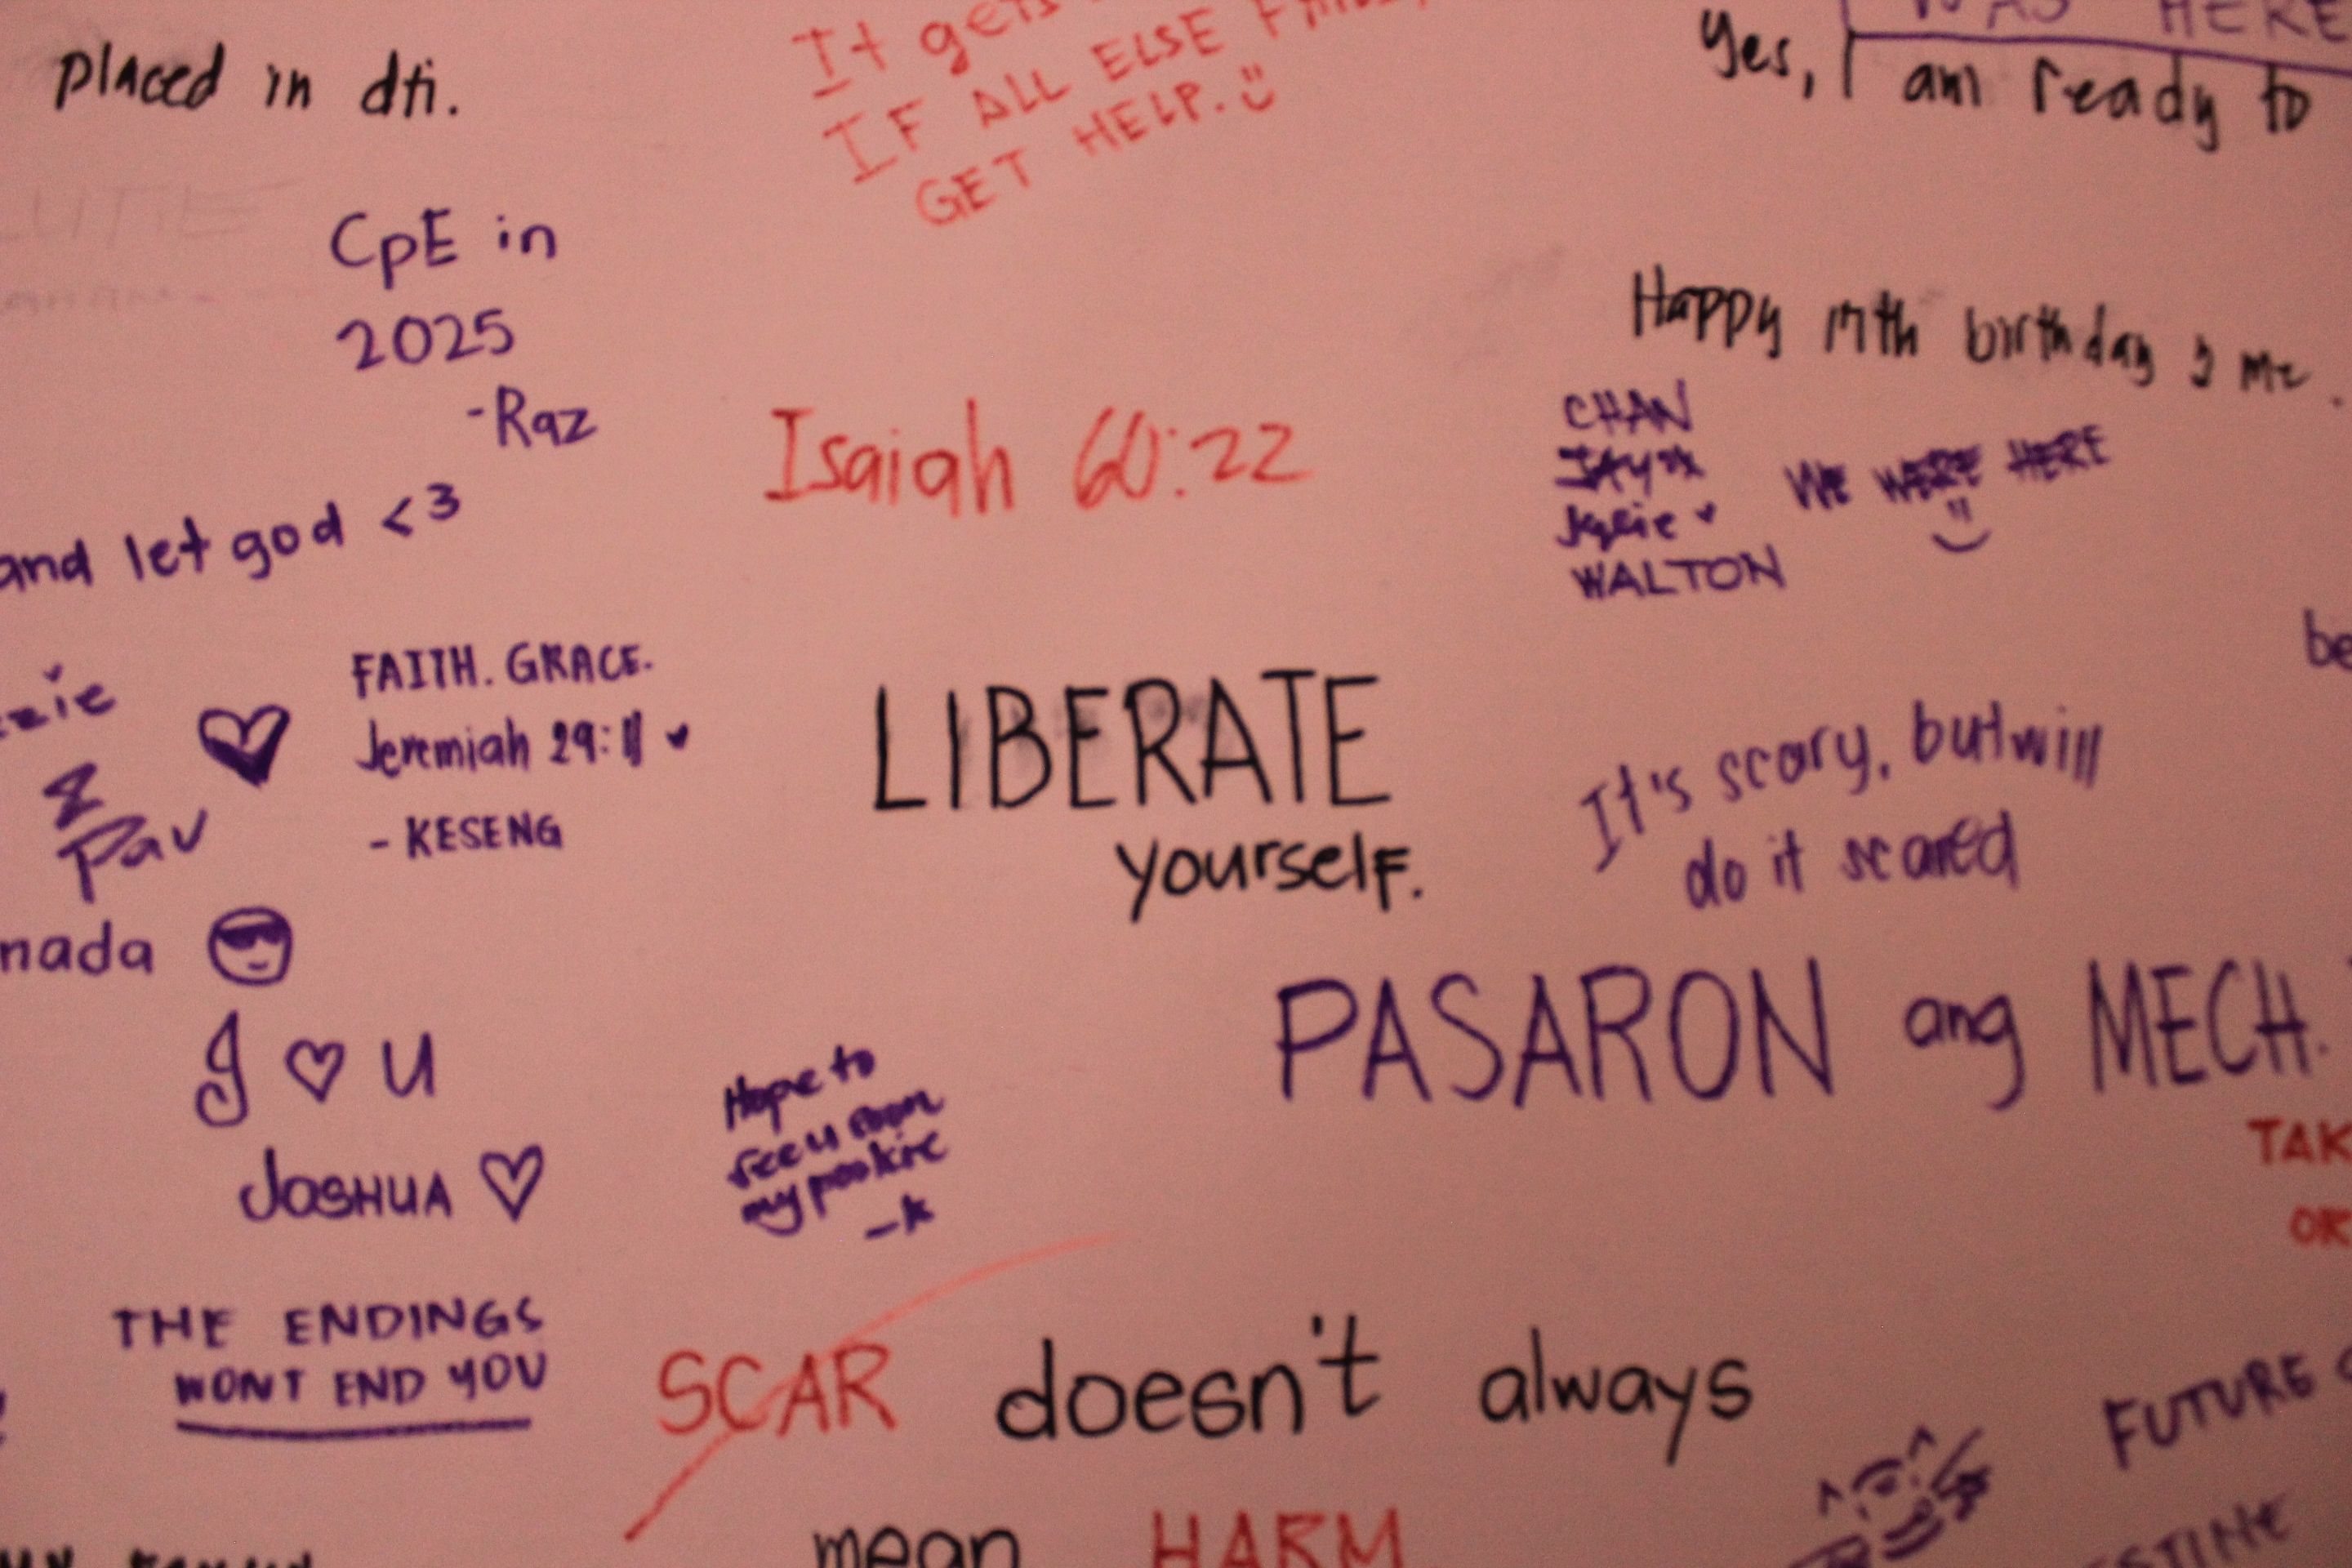 placed in dti.
It gets
IF ALL ELSE FAILS,
GET HELP.
WAS HERE
Yes, I am ready to
CpE in
2025
-Raz
Isaiah 60:22
Happy 17th birthday 2 me.
CHAN
WALTON
WE WERE HERE
and let god <3
FAITH. GRACE.
Jeremiah 29:11
- KESENG
&
Pav
LIBERATE
yourself.
be
It's scary, but will
do it scared
nada
I ♡ U
JOSHUA ♡
PASARON ang MECH.
Hope to
see u soon
my pookie
-k
TAK
OR
THE ENDINGS
WONT END YOU
SCAR doesn't always
mean HARM
FUTURE